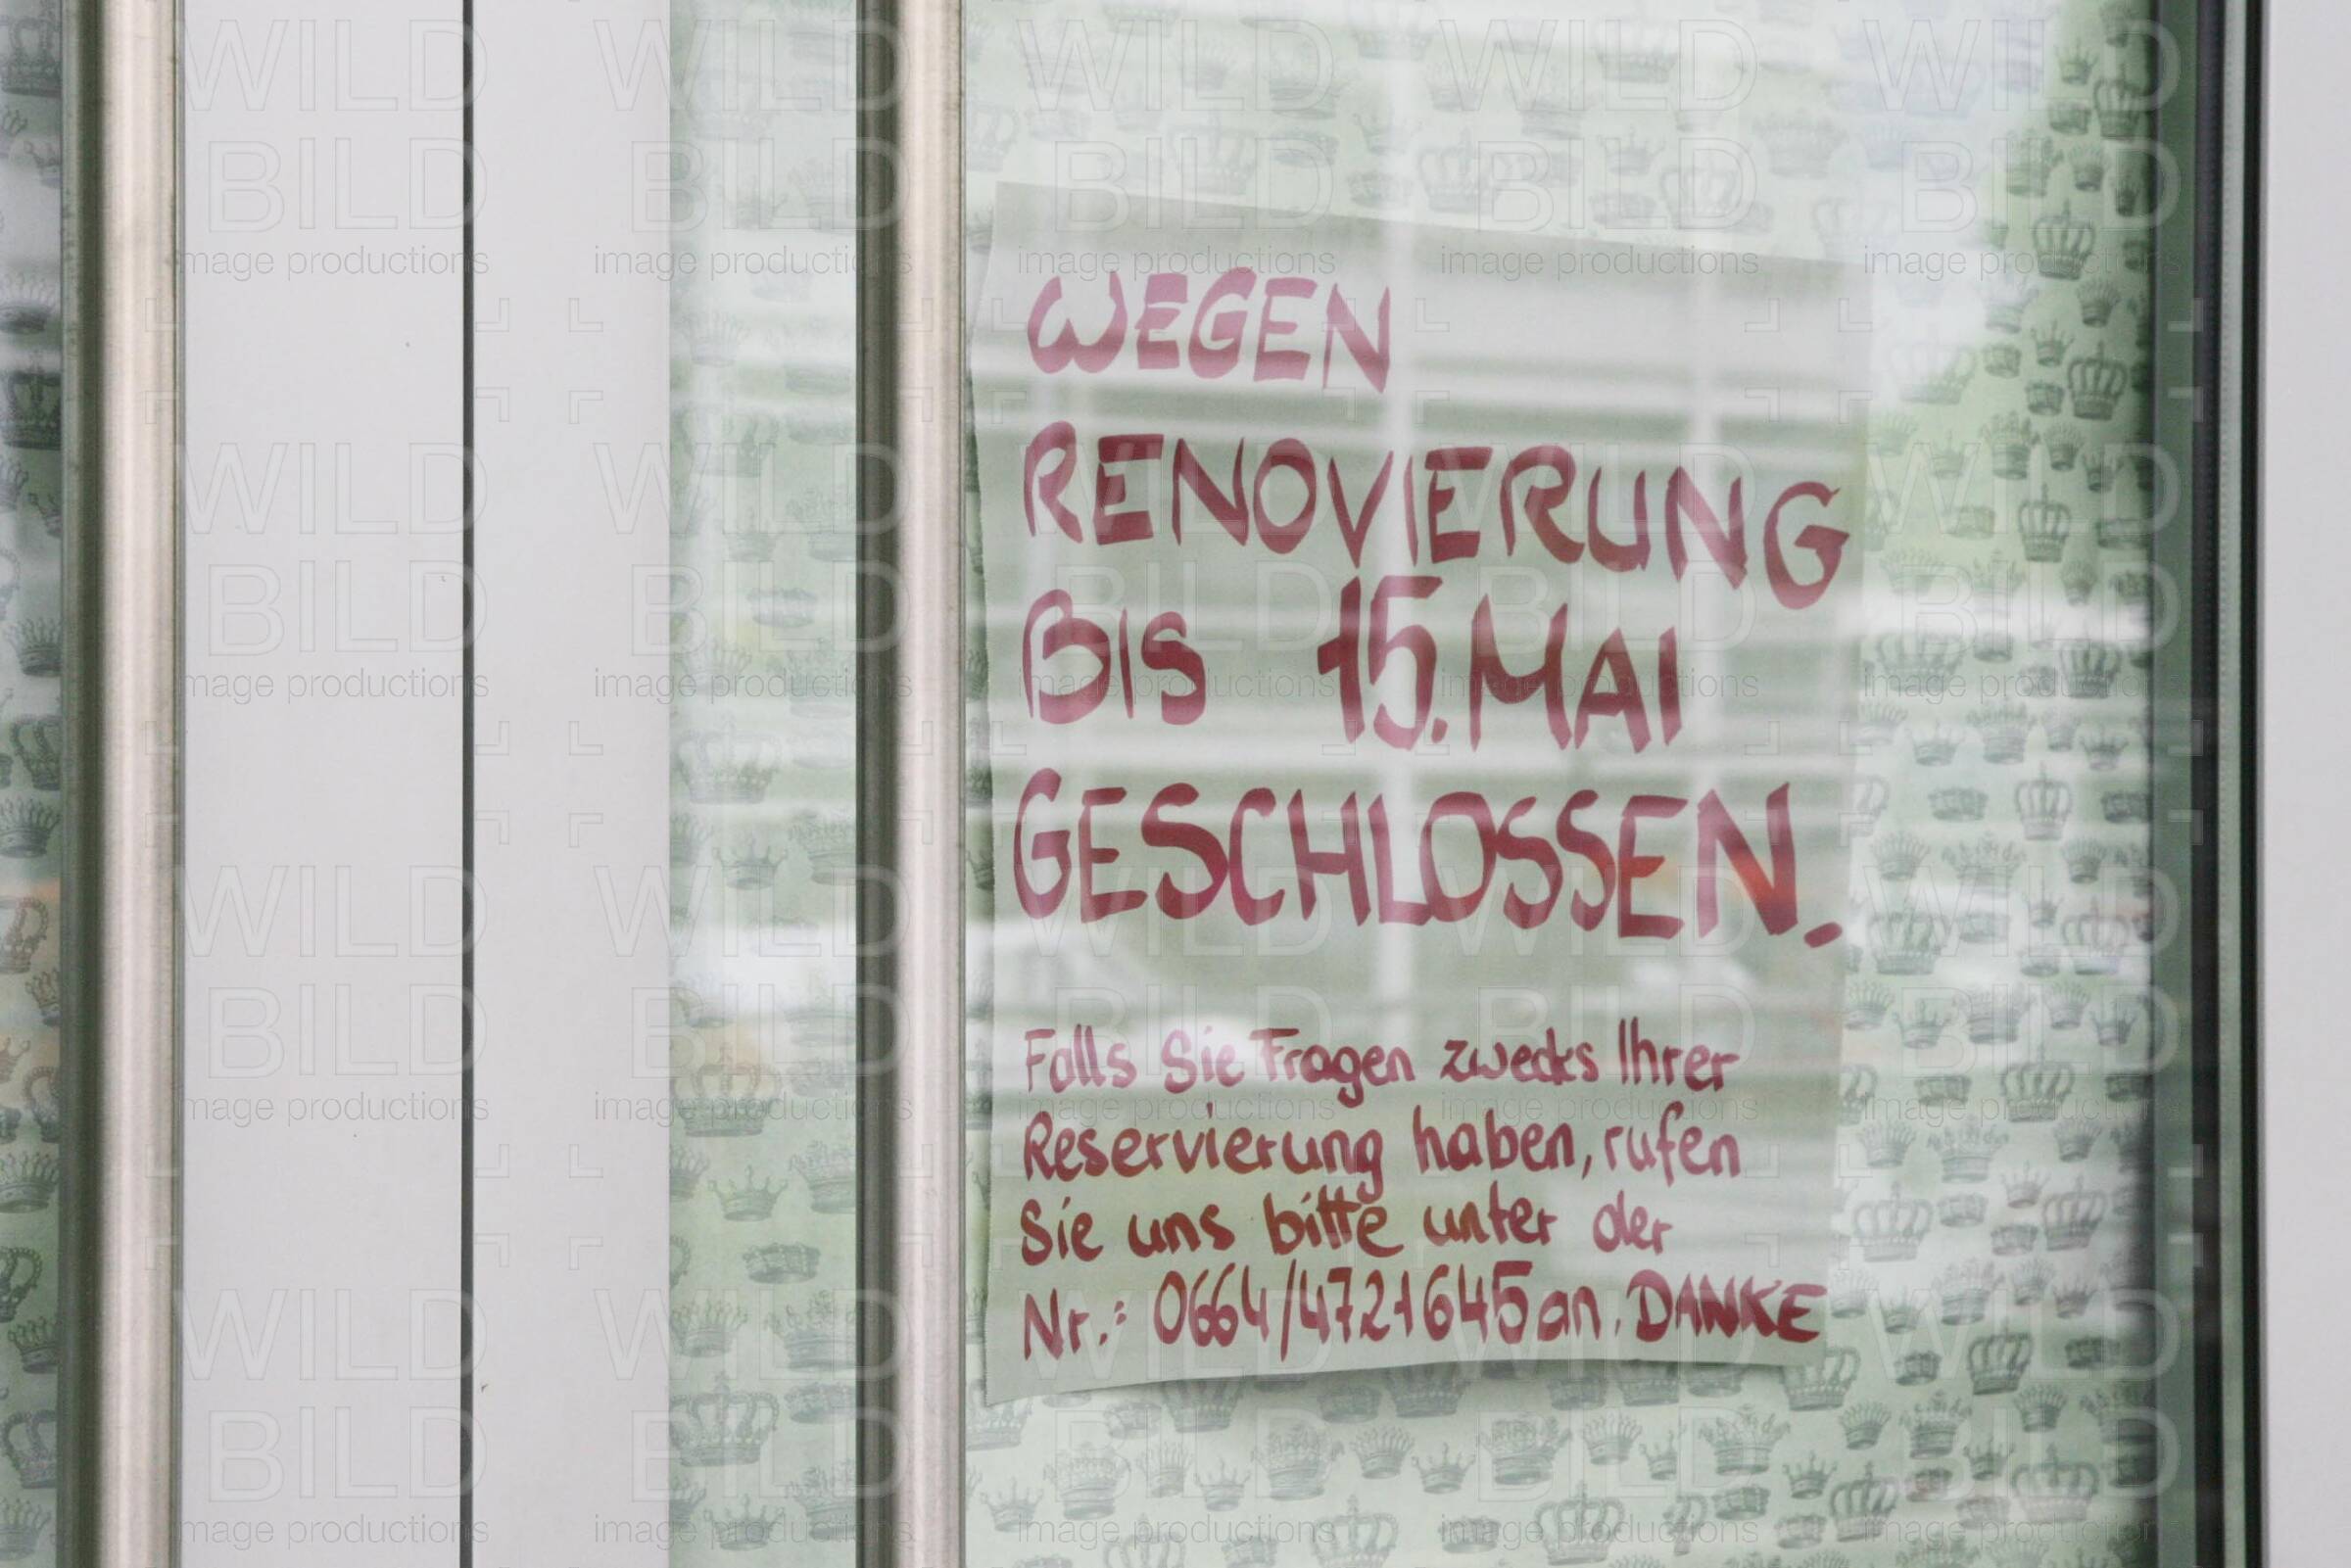 WEGEN
RENOVIERUNG
BIS 15. MAI
GESCHLOSSEN.
Falls Sie Fragen zwecks Ihrer
Reservierung haben, rufen
Sie uns bitte unter der
Nr.: 0664/4721645 an. DANKE
WILD
BILD
image productions